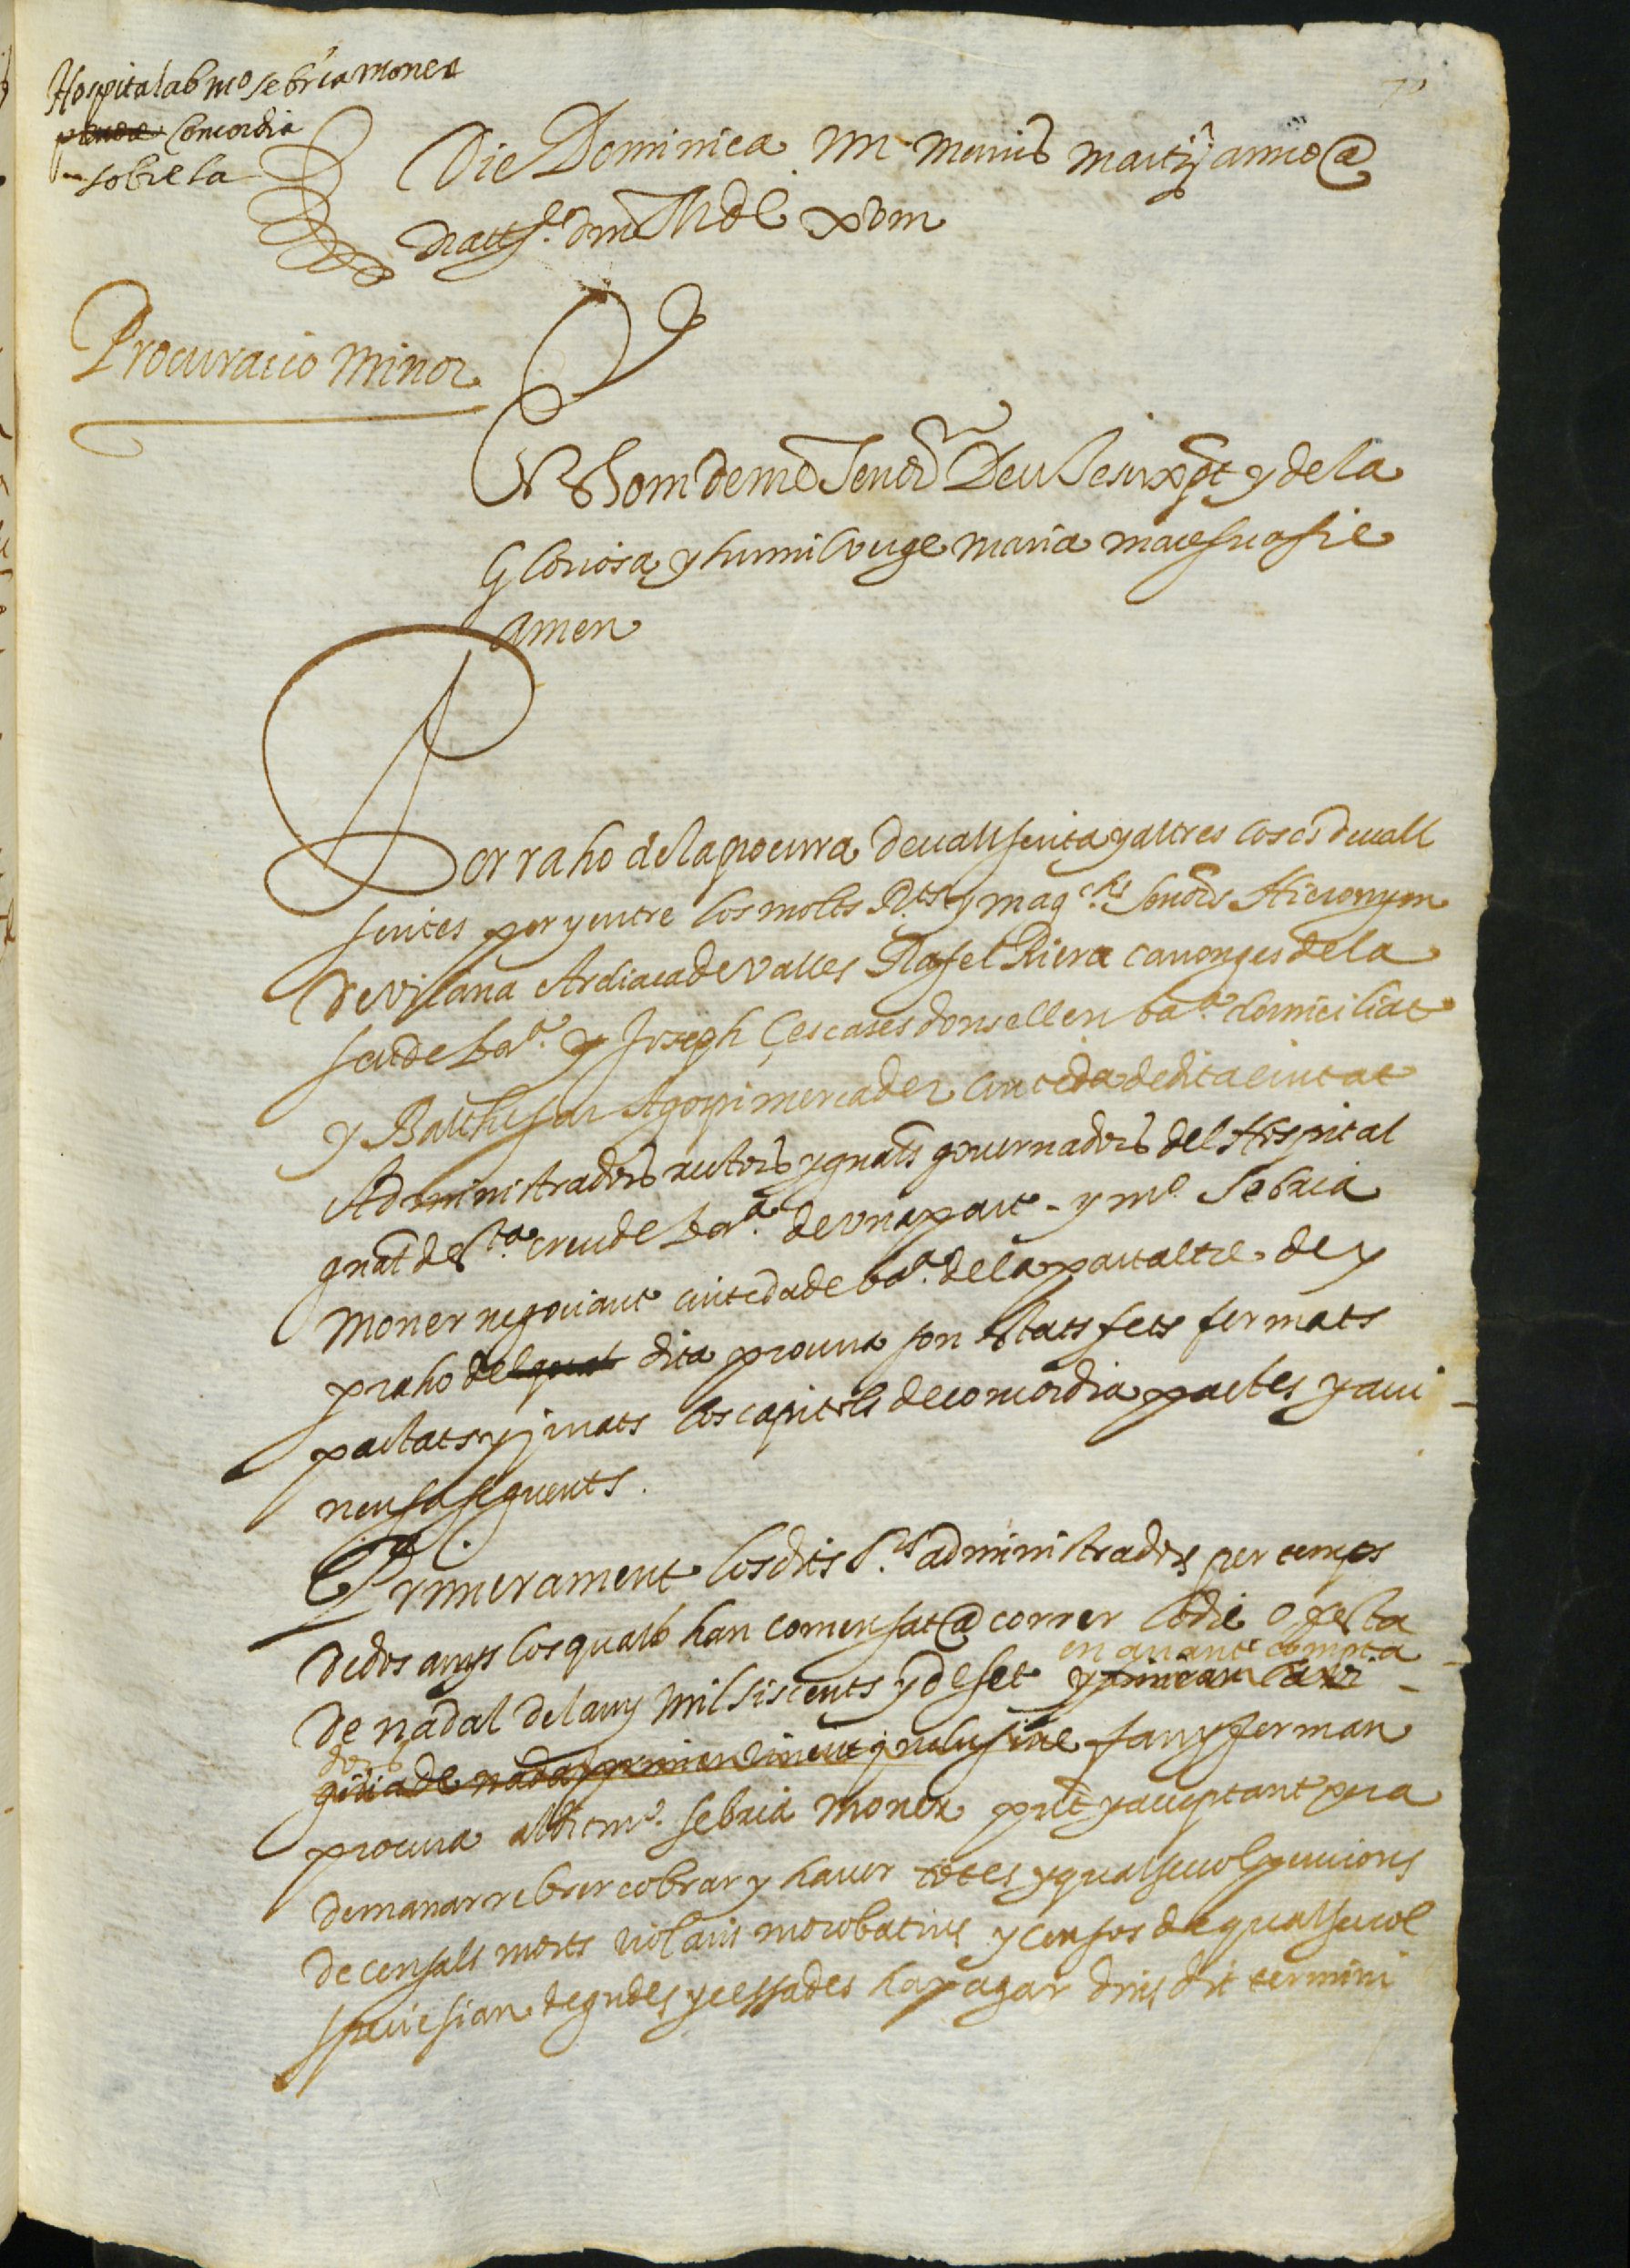 Hospital ab mº Sebria Moner
Concordia
sobre la
Die Dominica IIII mensis martij anno @
Natte. dni MDC xviii
Procuracio Minor
En Nom de nre Senor Deu Jesuxpt y dela
Gloriosa y humil verge maria mare sua sie
Amen
Per raho dela procura devall scrita y altres coses devall
scrites per y entre los molts Rts. y magchs. senors Hieronym
de Vilana Ardiaca de Valles Rafel Riera canonges dela
seu de bara. y Joseph Çescases donsell en bara. domiciliat
y Balthesar Agopi mercader ciuteda de dita ciutat
Administradors rectors y gnals governadors del Hospital
gnal de sta. creu de bara. de una part - y mº. Sebria
Moner negociant ciutedade bara. dela part altre de y
p raho del qual dita procura son estats fets fermats
pactats y jurats los capitols de concordia pactes y avi-
nensa seguents.
Primerament los dits Srs. administradors per temps
de dos anys los quals han comensat @ correr lo die o festa
en avant compta-
De nadal del any mil siscents y deset
dors
fan y ferman
procura al dit mº. sebria Moner pnt y acceptant pera
demanar rebrer cobrar y haver totes y qualsevol pencions
de censals morts violaris morobatins y censos de qualsevol
specie sian degudes y cessades ha pagar dins dit termini